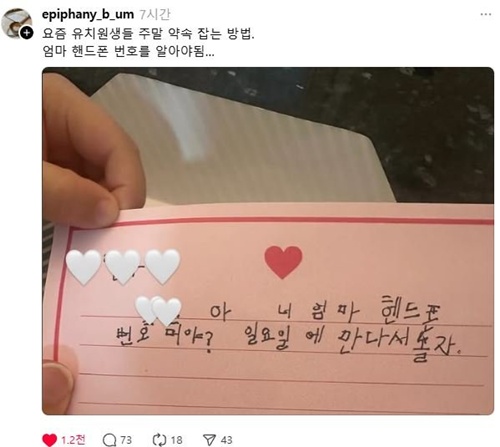 epiphany_b_um 7시간
요즘 유치원생들 주말 약속 잡는 방법.
엄마 핸드폰 번호를 알아야됨...
아 니 엄마 헨드폰
번호 머야? 일요일에 만다서놀자.
1.2천 73 18 43